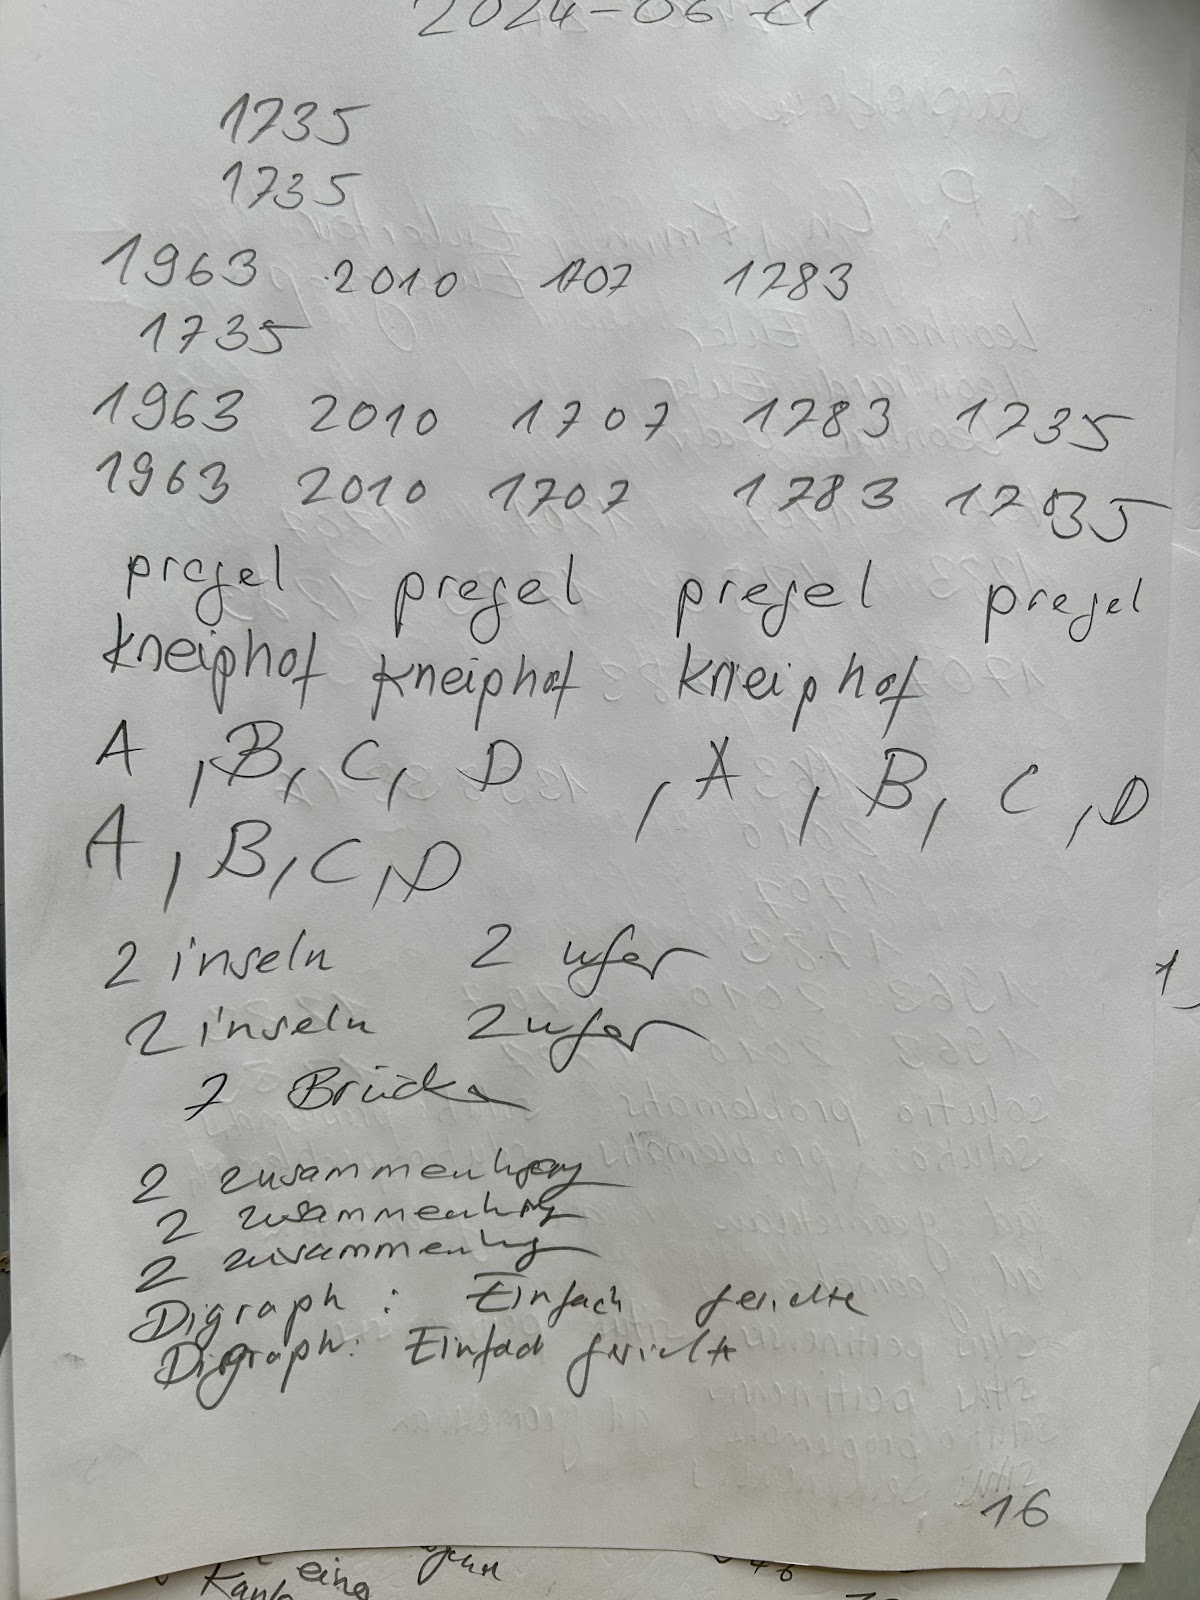 2024-06-21
1735
1735
1963 2010 1707 1783
1735
1963 2010 1707 1783 1735
1963 2010 1707 1783 1735
pregel pregel pregel pregel
kneiphof kneiphof kneiphof
A, B, C, D, A, B, C, D
A, B, C, D
2 inseln 2 ufer
2 inseln 2 ufer
7 Brücke
2 zusammenhang
2 zusammenhng
2 zusammenhng
Digraph: Einfach gerichte
Digraph: Einfach gericht
16
eine